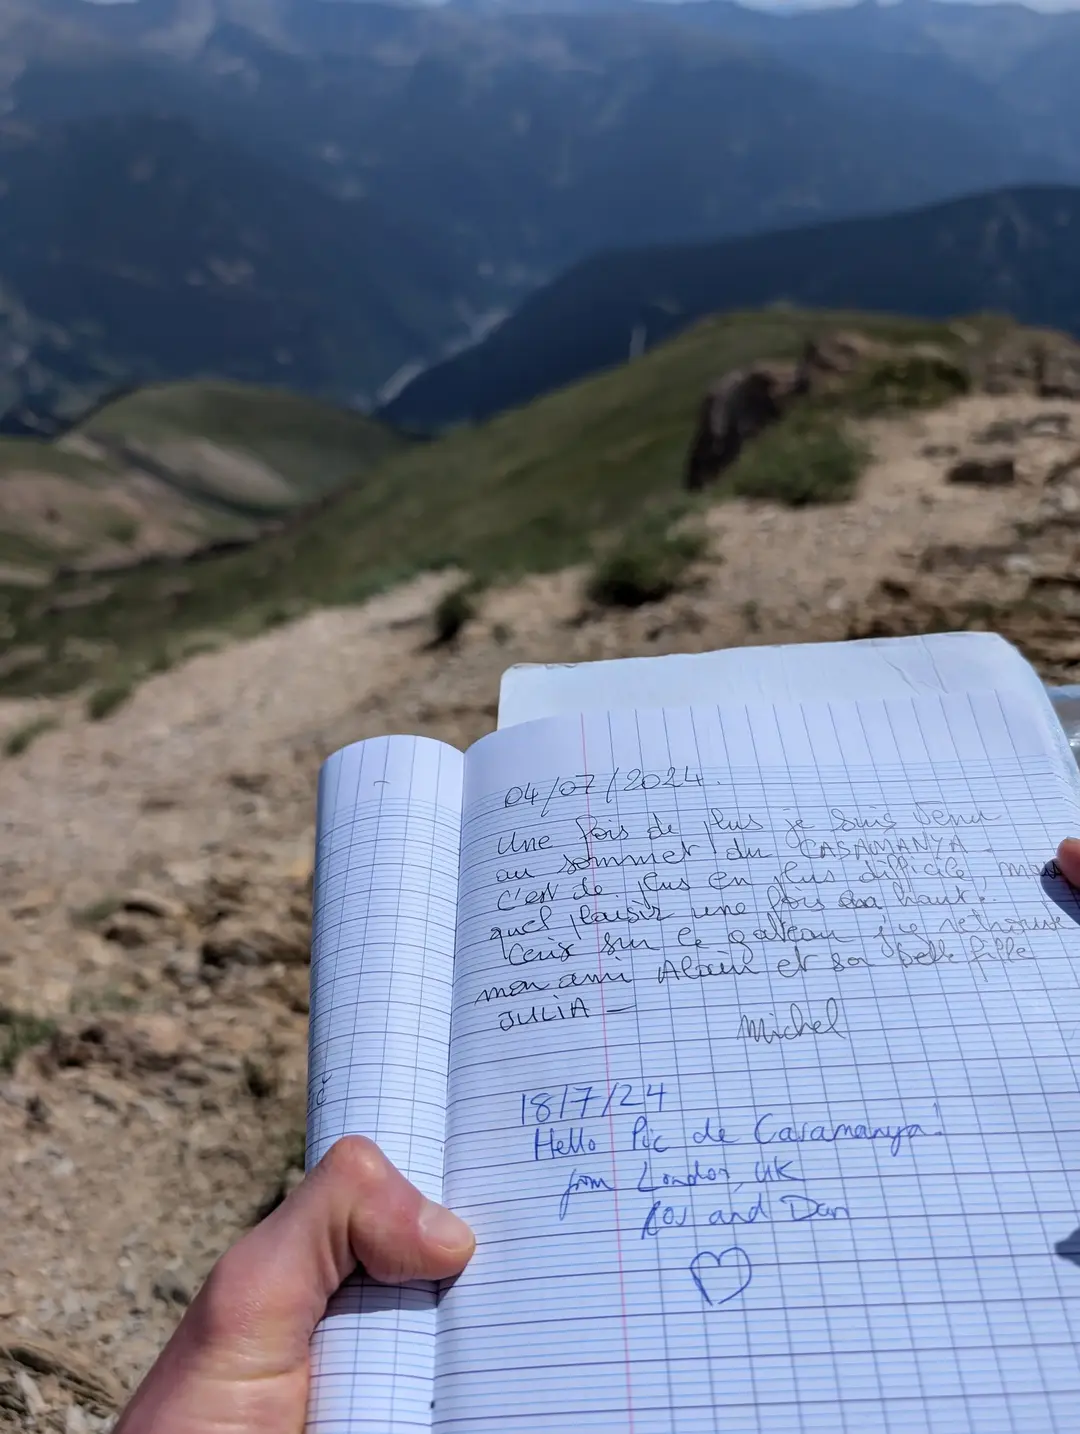 04/07/2024.
Une fois de plus je suis venu
au sommet du CASAMANYA.
C'est de plus en plus difficile, mais
quel plaisir une fois en haut.
Cerise sur le gateau je retrouve
mon ami Alain et sa belle fille
JULIA —
Michel
18/7/24
Hello Pic de Casamanya!
from London, UK
Ros and Dan